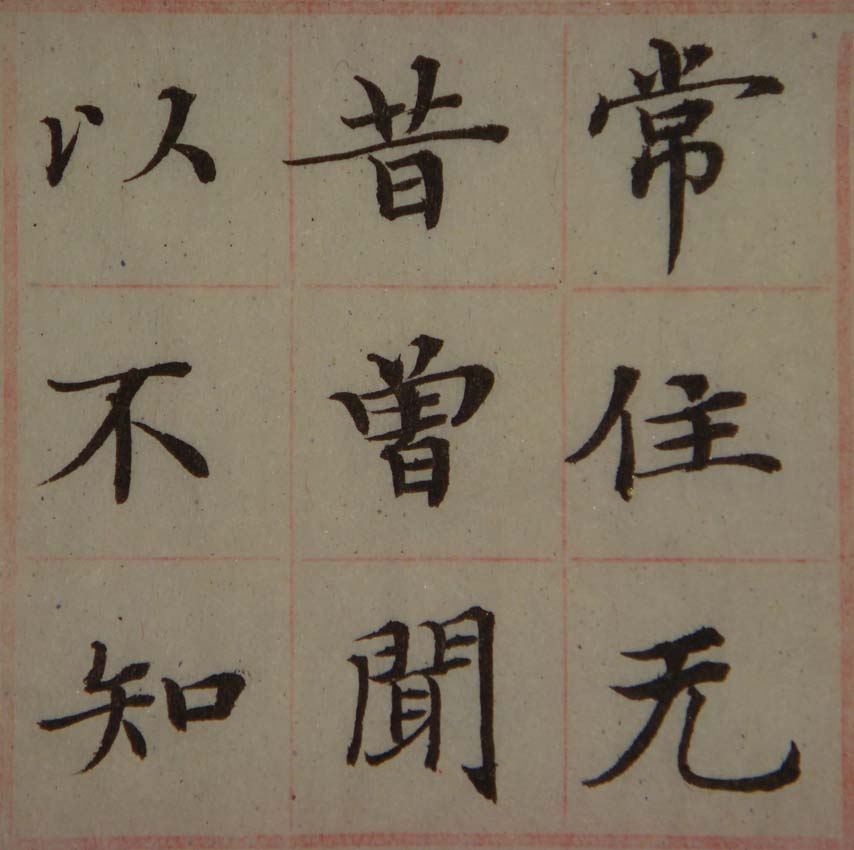 常住无
昔曾聞
以不知